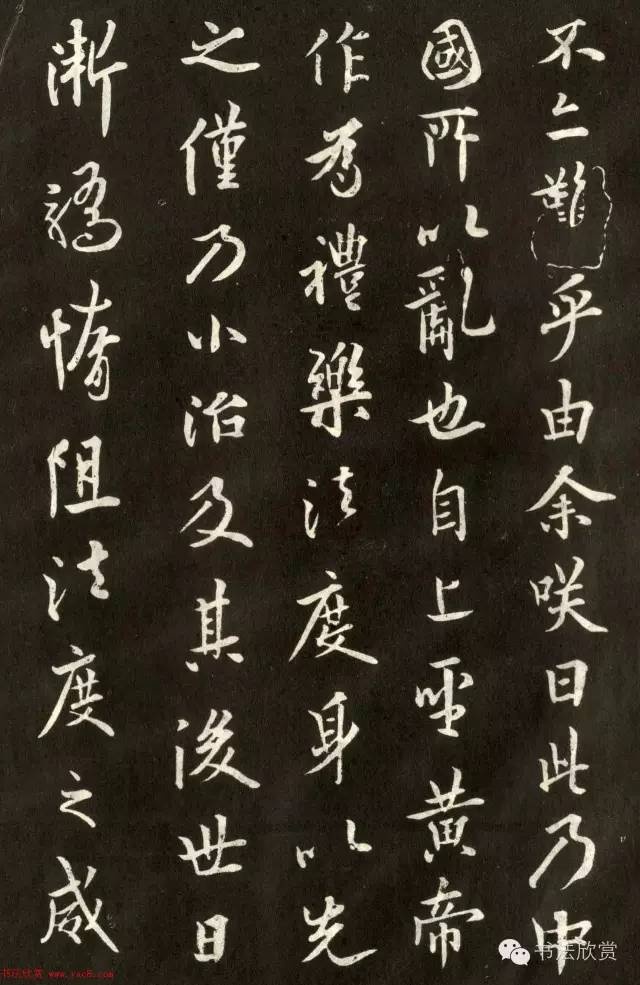 不亦難乎由余咲曰此乃中
國所以亂也自上聖黃帝
作爲禮樂法度身以先
之僅乃小治及其後世日
漸驕惰阻法度之威
书法欣赏
书法欣赏 www.yac8.com